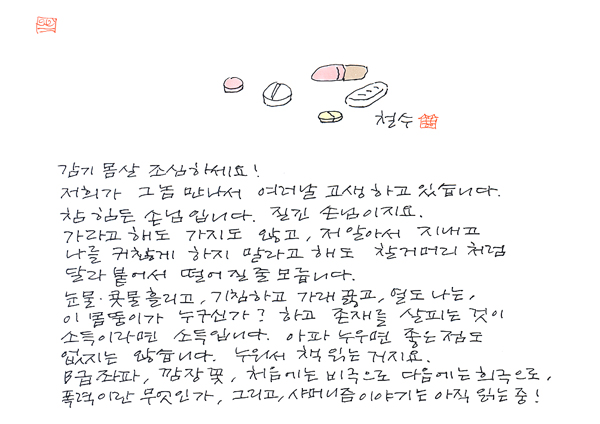 철수
감기 몸살 조심하세요!
저희가 그놈 만나서 여러날 고생하고 있습니다.
참 힘든 손님입니다. 질긴 손님이지요.
가라고 해도 가지도 않고, 저 알아서 지내고
나를 귀찮게 하지 말라고 해도 찰거머리처럼
달라붙어서 떨어질줄 모릅니다.
눈물·콧물흘리고, 기침하고 가래끓고, 열도 나는,
이 몸뚱이가 누구신가? 하고 존재를 살피는 것이
소득이라면 소득입니다. 아파 누우면 좋은점도
없지는 않습니다. 누워서 책 읽는 거지요.
B급좌파, 깜장꽃, 처음에는 비극으로 다음에는 희극으로,
폭력이란 무엇인가, 그리고, 샤머니즘이야기는 아직 읽는 중!